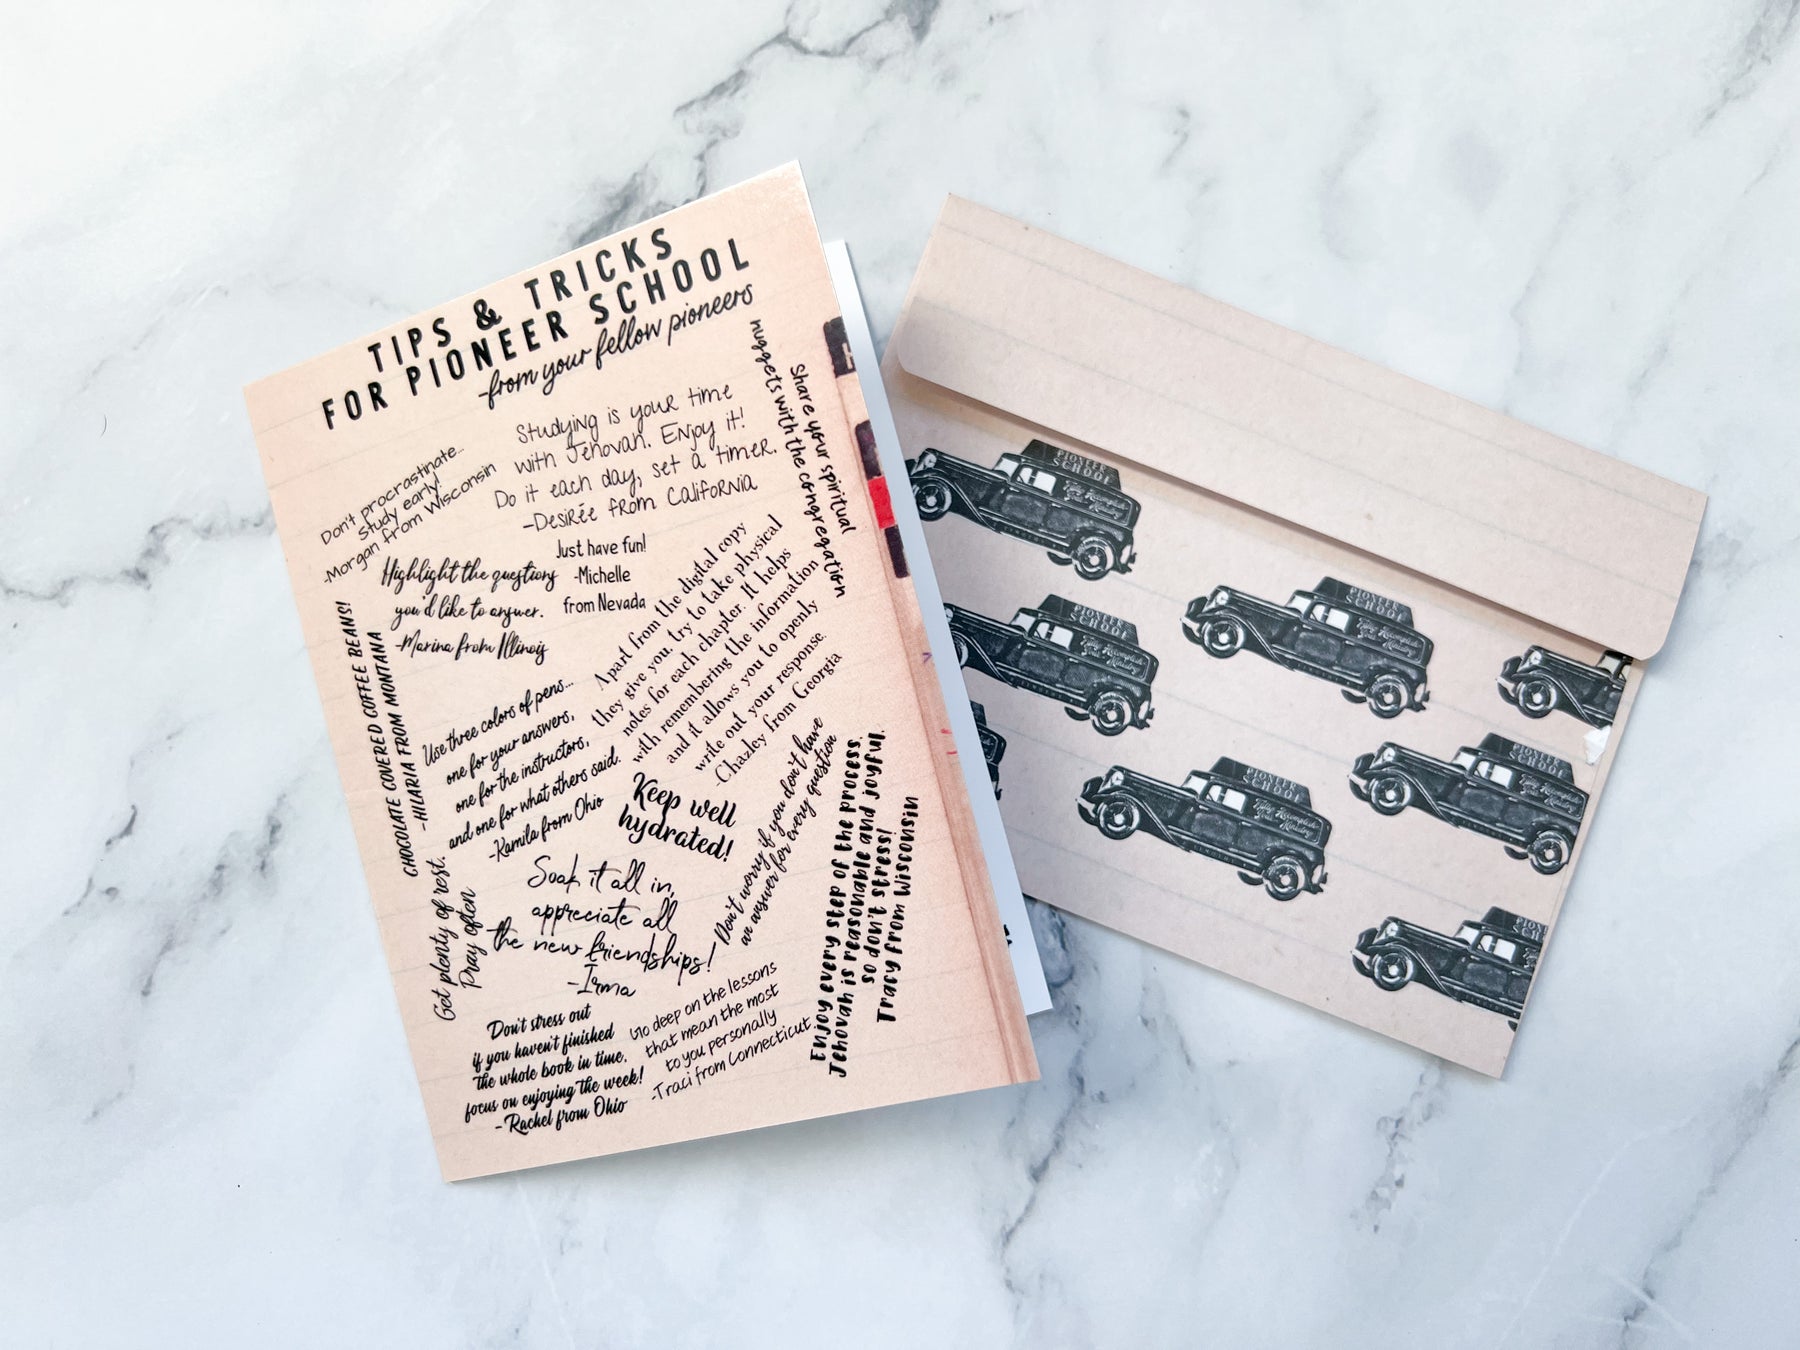 TIPS & TRICKS
FOR PIONEER SCHOOL
-from your fellow pioneers
Don't procrastinate...
Study early!
-Morgan from Wisconsin
Studying is your time
with Jehovah. Enjoy it!
Do it each day, set a timer.
-Desirée from California
Share your spiritual
nuggets with the congregation
Highlight the questions
you'd like to answer.
-Marina from Illinois
Just have fun!
-Michelle
from Nevada
CHOCOLATE COVERED COFFEE BEANS!
-HILARIA FROM MONTANA
Apart from the digital copy
they give you, try to take physical
notes for each chapter. It helps
with remembering the information
and it allows you to openly
write out your response.
-Chazley from Georgia
Use three colors of pens...
one for your answers,
one for the instructors,
and one for what others said.
-Kamila from Ohio
Keep well
hydrated!
Don't worry if you don't have
an answer for every question
Enjoy every step of the process.
Jehovah is reasonable and joyful,
so don't stress!
Tracy from Wisconsin
Get plenty of rest.
Pray often
Soak it all in,
appreciate all
the new friendships!
-Irma
Don't stress out
if you haven't finished
the whole book in time,
focus on enjoying the week!
-Rachel from Ohio
Go deep on the lessons
that mean the most
to you personally
-Traci from Connecticut
PIONEER
SCHOOL
Fully Accomplish
Your Ministry
PIONEER
SCHOOL
Fully Accomplish
Your Ministry
PIONEER
SCHOOL
Fully Accomplish
Your Ministry
PIONEER
SCHOOL
Fully Accomplish
Your Ministry
PIONEER
SCHOOL
Fully Accomplish
Your Ministry